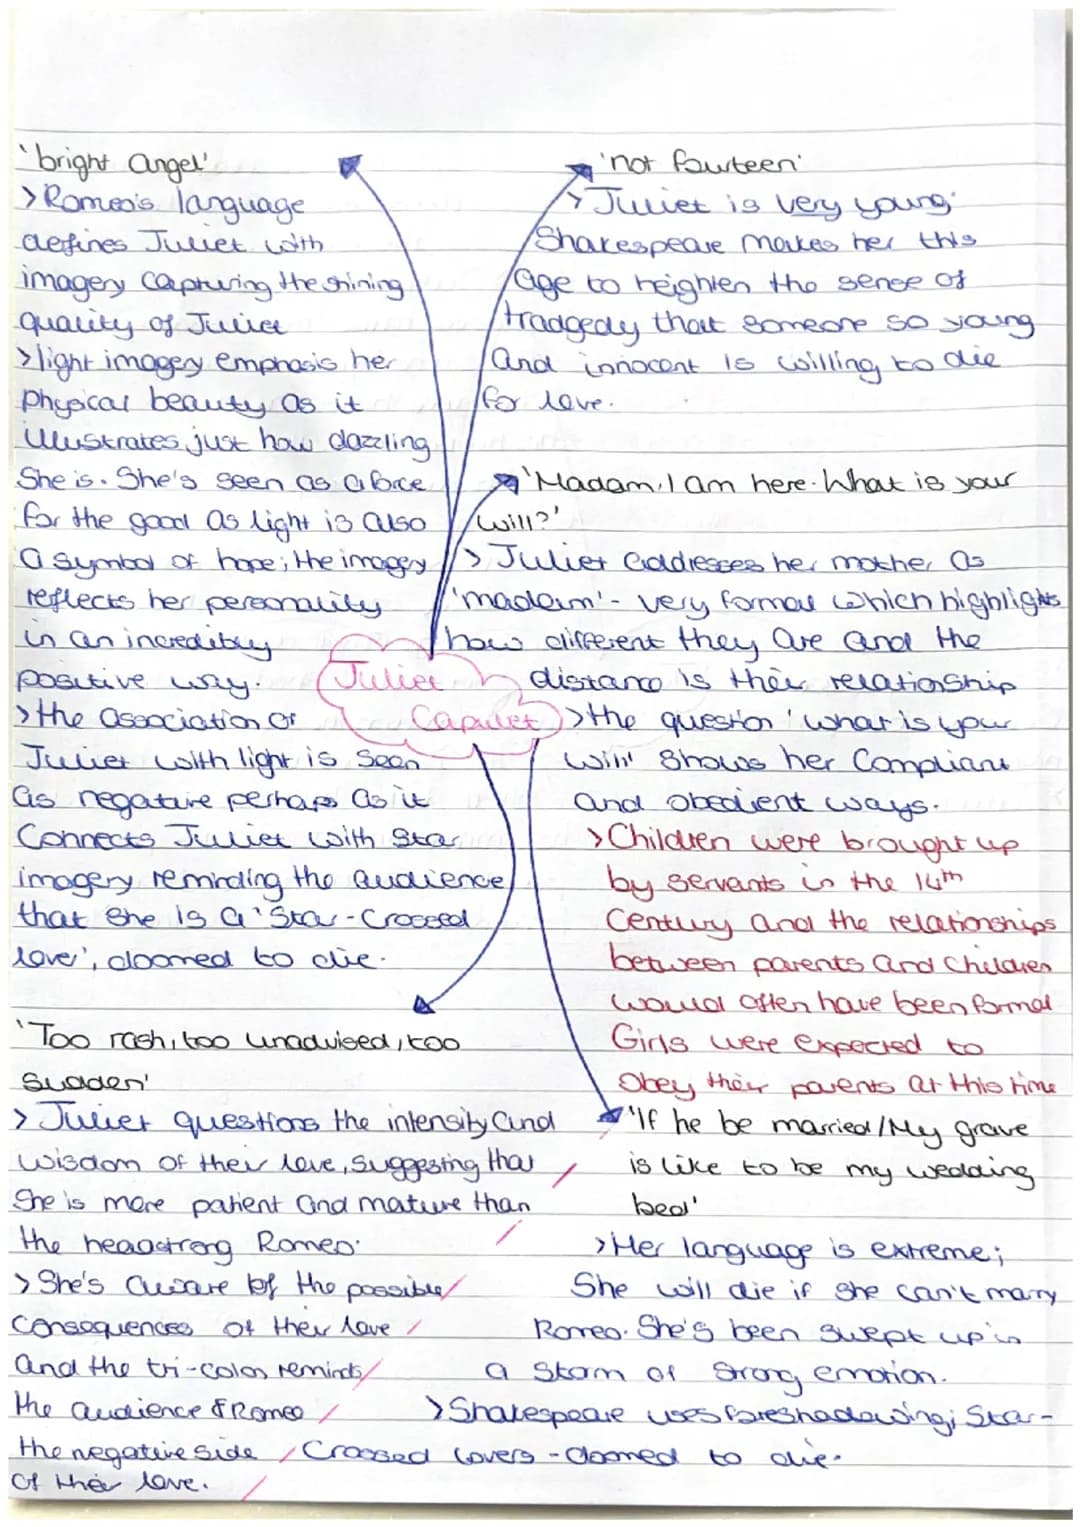 'bright angel'
>Romeo's language
defines Juliet with
imagery capturing the shining
quality of Juliet
>light imagery emphasis her
physical beauty as it
illustrates just how dazzling
She is. She's seen as a force
for the good as light is also
a symbol of hope; the imagery
reflects her personality
in an incredibly
positive way.
>the association of
Juliet with light is seen
as negative perhaps as it
Connects Juliet with star
imagery reminding the audience
that she is a 'Star-Crossed
lover', doomed to die.
'Too rash, too unadvised, too
sudden'
> Juliet questions the intensity and
wisdom of their love, suggesting that
She is more patient and mature than
the headstrong Romeo.
> She's aware of the possible
consequences of their love
and the tri-colon reminds
the audience & Romeo
the negative side
of their love.
Juliet
Capulet
'not fourteen'
> Juliet is very young;
Shakespeare makes her this
age to heighten the sense of
tradgedy that someone so young
and innocent is willing to die
for love.
'Madam, I am here. What is your
will?'
> Juliet addresses her mother as
'madam' - very formal which highlights
how different they are and the
distance is their relationship
>the question 'what is your
will' shows her compliant
and obedient ways.
>Children were brought up
by servants in the 14th
Century and the relationships
between parents and children
would often have been formal
Girls were expected to
obey their parents at this time
'If he be married/My grave
is like to be my wedding
bed'
>Her language is extreme;
She will die if she can't marry
Romeo. She's been swept up in
a storm of strong emotion.
>Shakespeare uses foreshadowing; Star-
Crossed lovers - doomed to die.